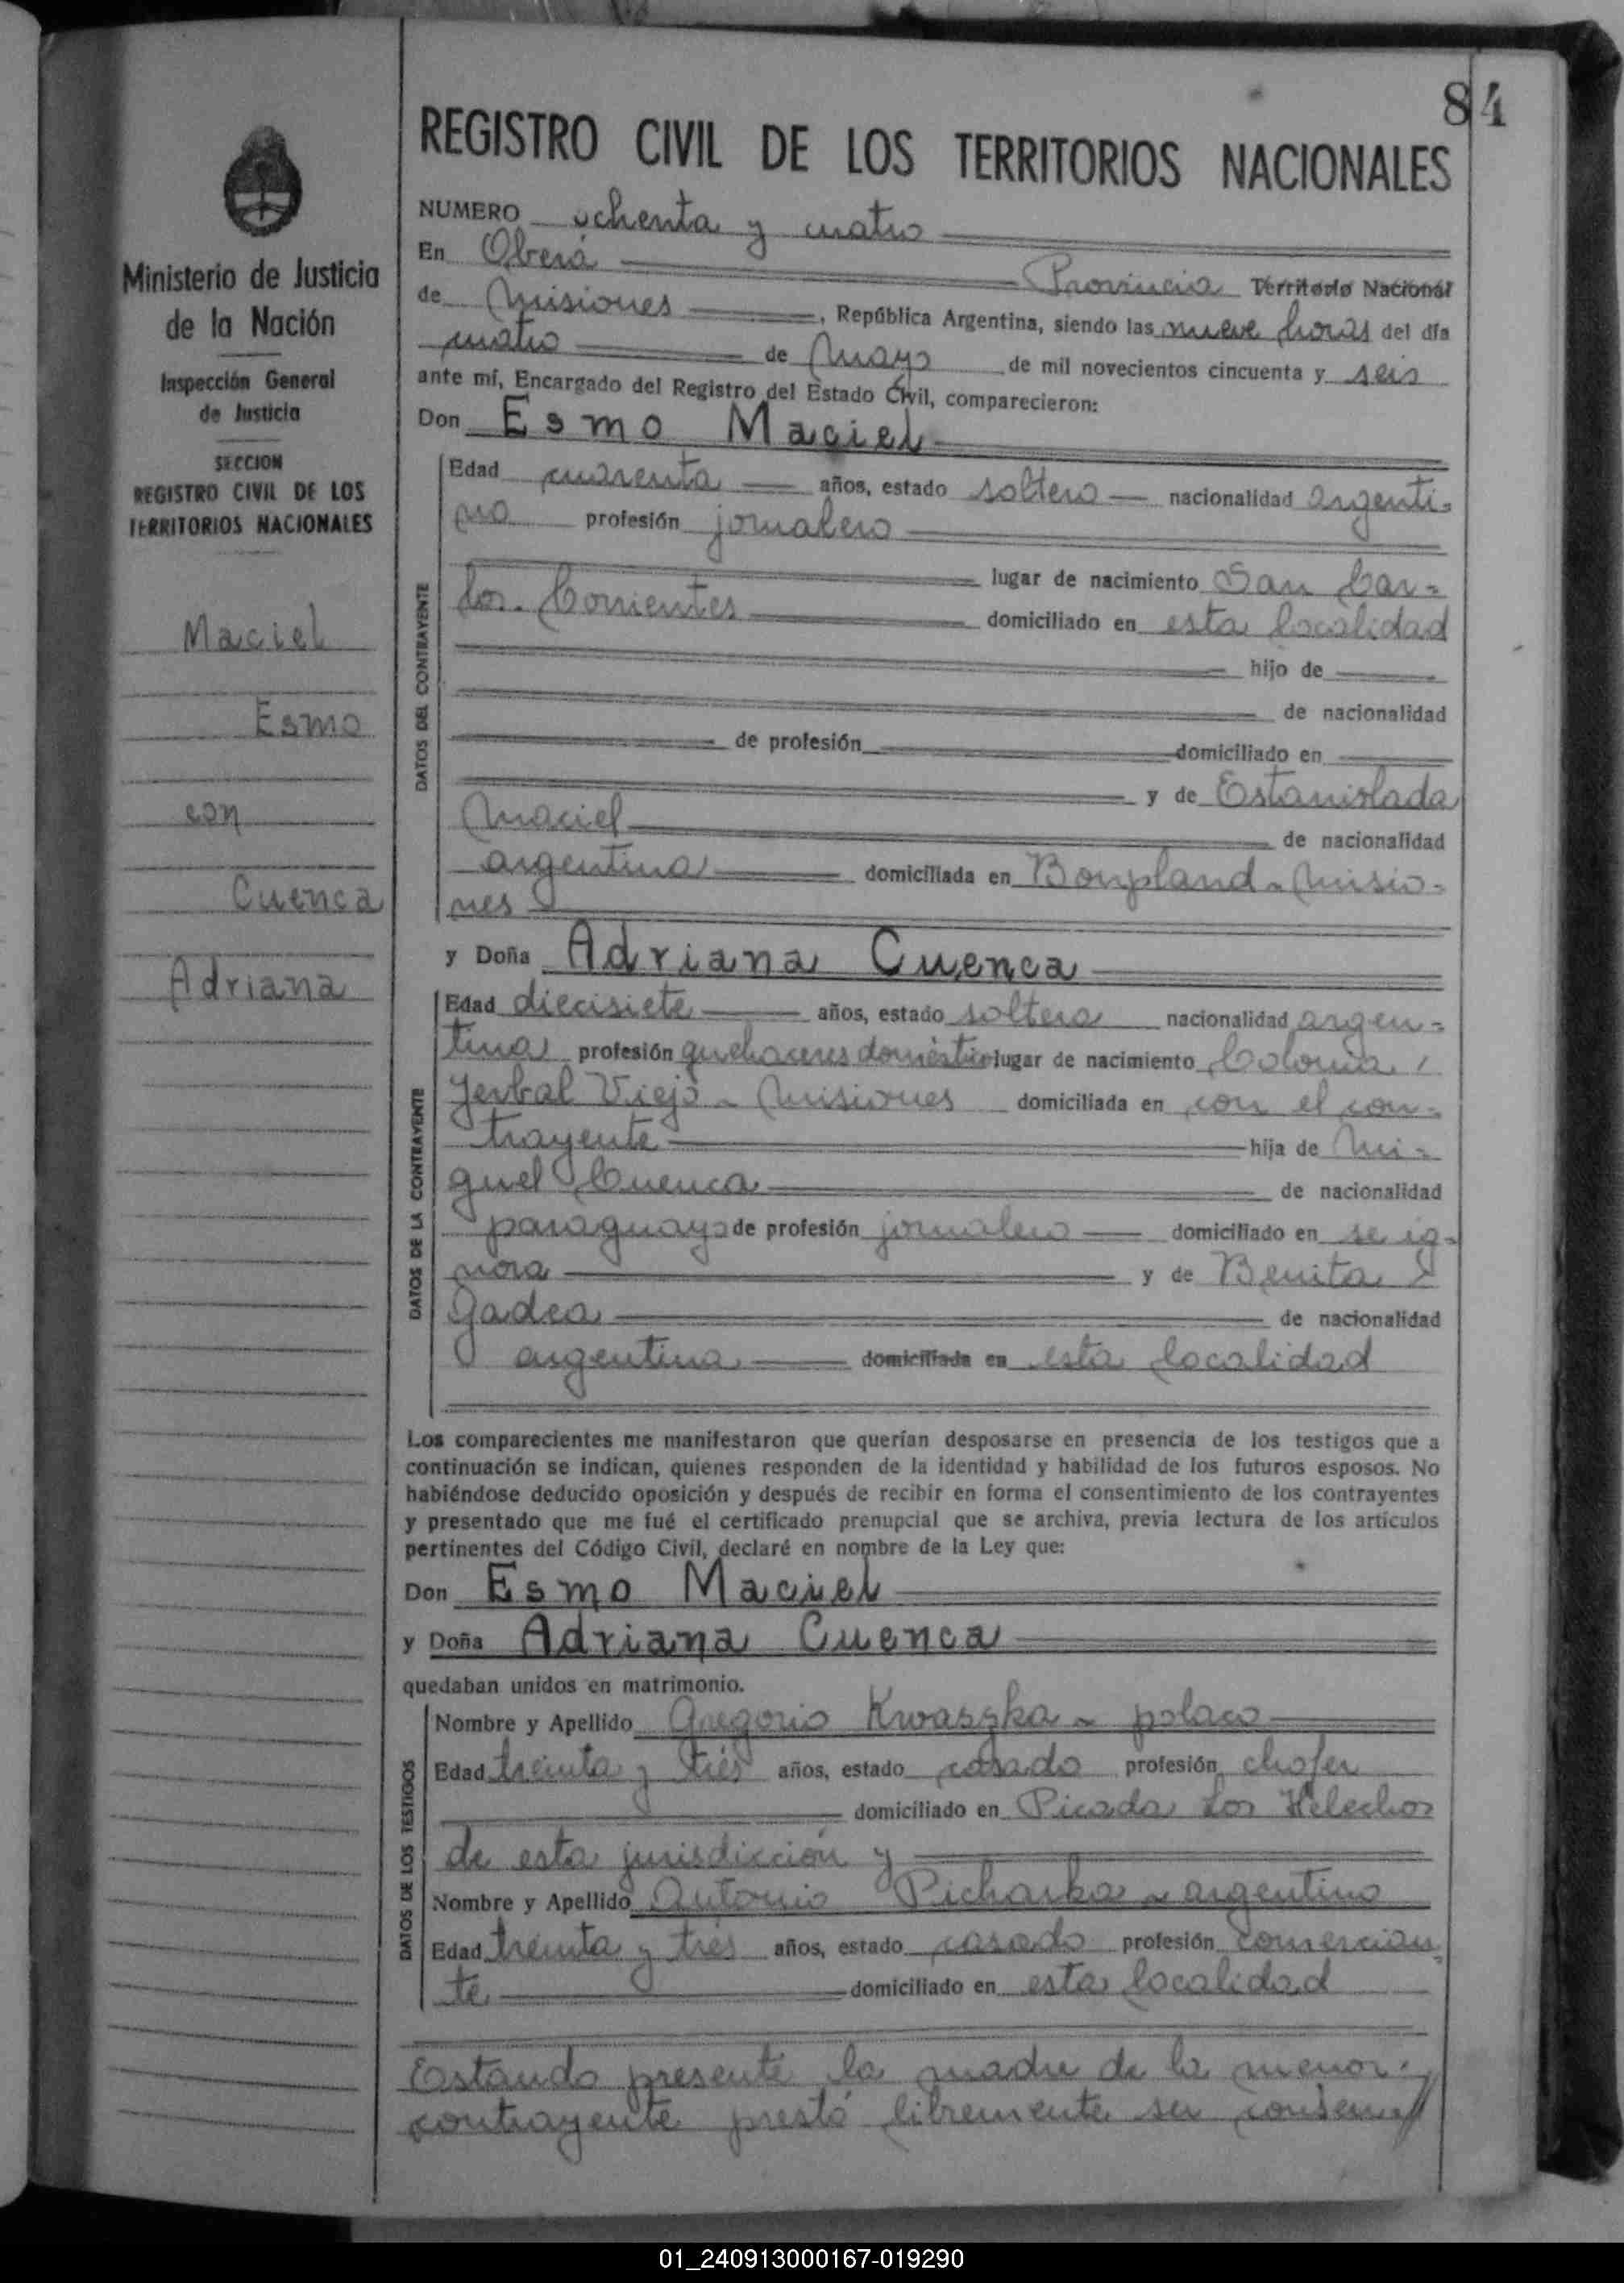 84
REGISTRO CIVIL DE LOS TERRITORIOS NACIONALES
Ministerio de Justicia
de la Nación
Inspección General
de Justicia
SECCION
REGISTRO CIVIL DE LOS
TERRITORIOS NACIONALES
Maciel
Esmo
con
Cuenca
Adriana
NUMERO ochenta y cuatro
En Oberá Provincia Territorio Nacional
de Misiones, República Argentina, siendo las nueve horas del día
cuatro de Mayo de mil novecientos cincuenta y seis
ante mí, Encargado del Registro del Estado Civil, comparecieron:
Don Esmo Maciel
DATOS DEL CONTRAYENTE
Edad cuarenta años, estado soltero nacionalidad argenti-
no profesión jornalero
lugar de nacimiento San Car-
los. Corrientes domiciliado en esta localidad
hijo de
de nacionalidad
de profesión domiciliado en
y de Estanislada
Maciel de nacionalidad
argentina domiciliada en Bonpland - Misio-
nes
y Doña Adriana Cuenca
DATOS DE LA CONTRAYENTE
Edad diecisiete años, estado soltera nacionalidad argen-
tina profesión quehaceres domésticos lugar de nacimiento Colonia
Yerbal Viejo - Misiones domiciliada en con el con-
trayente hija de Mi-
guel Cuenca de nacionalidad
paraguayo de profesión jornalero domiciliado en se ig-
nora y de Benita
Gadea de nacionalidad
argentina domiciliada en esta localidad
Los comparecientes me manifestaron que querían desposarse en presencia de los testigos que a
continuación se indican, quienes responden de la identidad y habilidad de los futuros esposos. No
habiéndose deducido oposición y después de recibir en forma el consentimiento de los contrayentes
y presentado que me fué el certificado prenupcial que se archiva, previa lectura de los artículos
pertinentes del Código Civil, declaré en nombre de la Ley que:
Don Esmo Maciel
y Doña Adriana Cuenca
quedaban unidos en matrimonio.
DATOS DE LOS TESTIGOS
Nombre y Apellido Gregorio Kwaszka - polaco
Edad treinta y tres años, estado casado profesión chofer
domiciliado en Picada Los Helechos
de esta jurisdicción y
Nombre y Apellido Antonio Picharka - argentino
Edad treinta y tres años, estado casado profesión comercian-
te domiciliado en esta localidad
Estando presente la madre de la menor
contrayente prestó libremente su consen
01_240913000167-019290